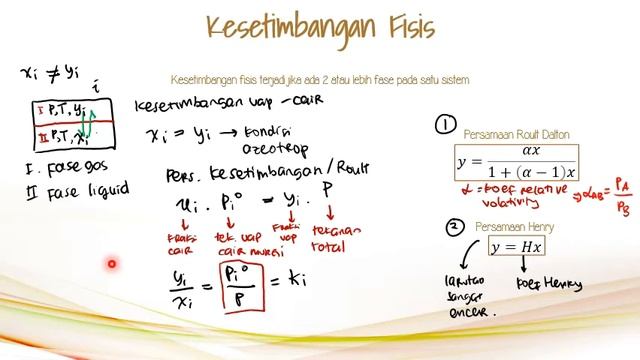 Kesetimbangan Fisis
Kesetimbangan fisis terjadi jika ada 2 atau lebih fase pada satu sistem
xi ≠ yi
i
I P,T, yi
II P,T, xi
I. Fase gas
II Fase liquid
Kesetimbangan uap - cair
xi = yi → kondisi
azeotrop
Pers. kesetimbangan / Roult
xi . Pi° = yi . P
fraksi
cair
tek. uap
cair murni
Fraksi
uap
tekanan
total
yi/xi = Pi°/P = Ki
1
Persamaan Roult Dalton
y = αx / 1 + (α − 1)x
α = koef relative
volativity
→ αAB = PA/PB
2
Persamaan Henry
y = Hx
larutan
sangat
encer.
koef Henry